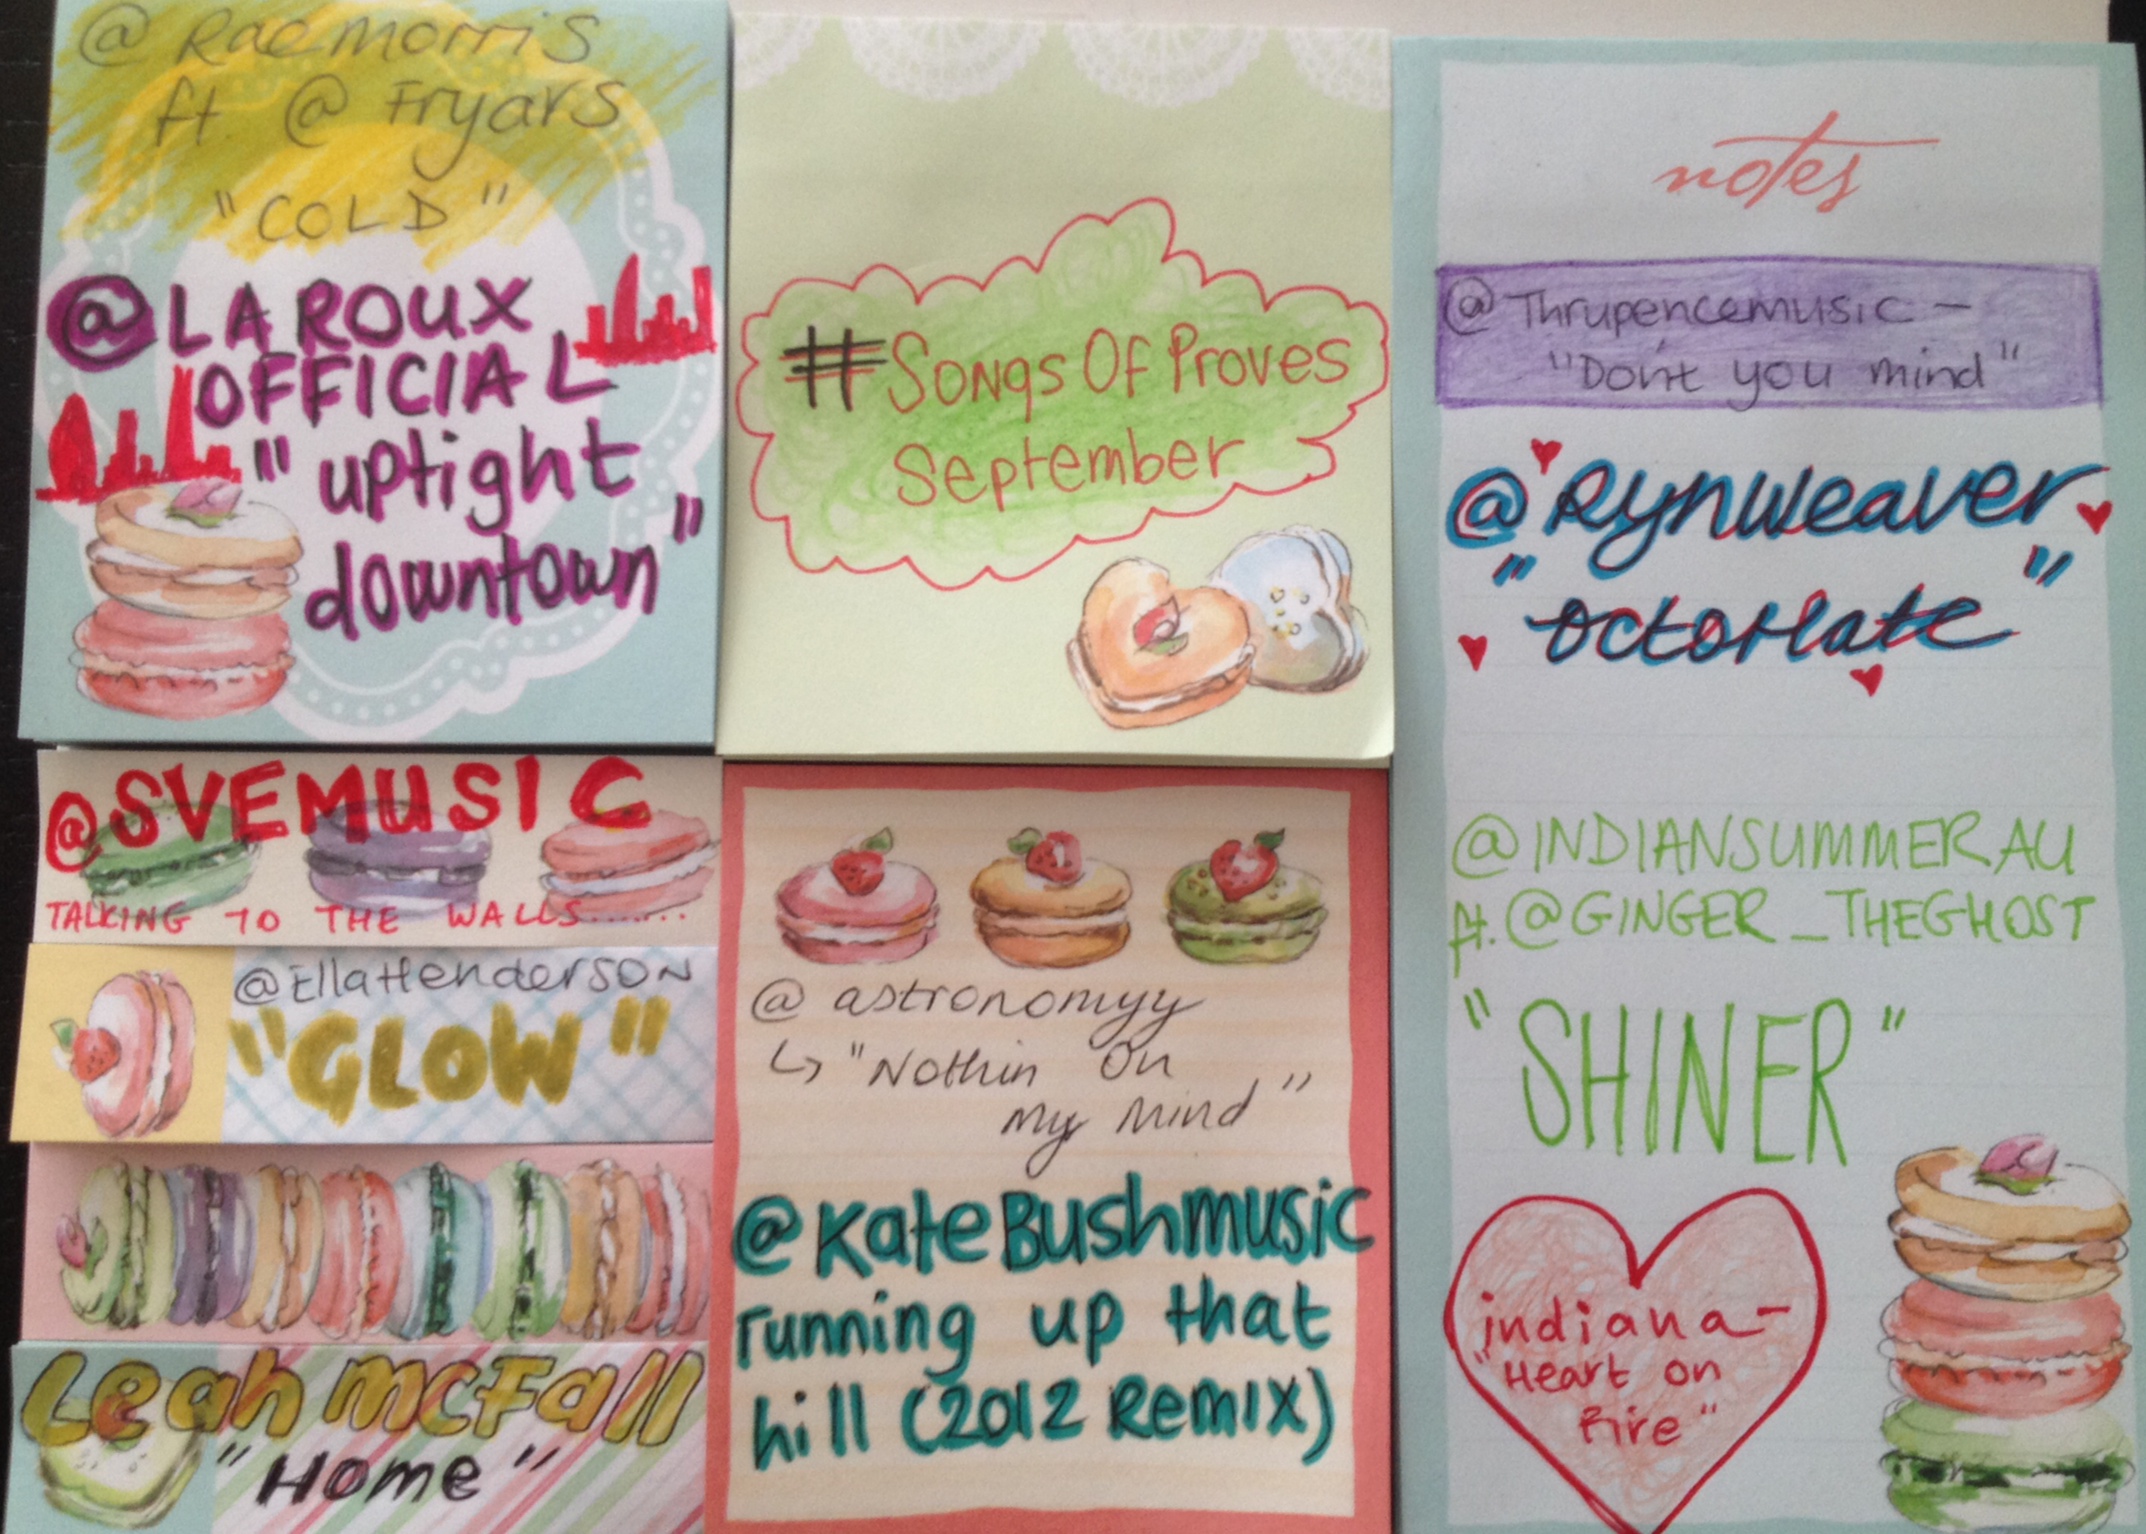 @ Raemorris
ft @ Fryars
"COLD"
@LA ROUX
OFFICIAL
"uptight
downtown"
#Songs Of Proves
September
notes
@Thrupencemusic -
"Don't you mind"
@Rynweaver
"OctaHate"
@INDIANSUMMERAU
ft. @GINGER_THEGHOST
"SHINER"
indiana-
"Heart on
Fire"
@SVEMUSIC
TALKING TO THE WALLS.......
@EllaHenderson
"GLOW"
Leah McFall
"Home"
@ astronomyy
↳ "Nothin On
My Mind"
@KateBushmusic
running up that
hill (2012 Remix)